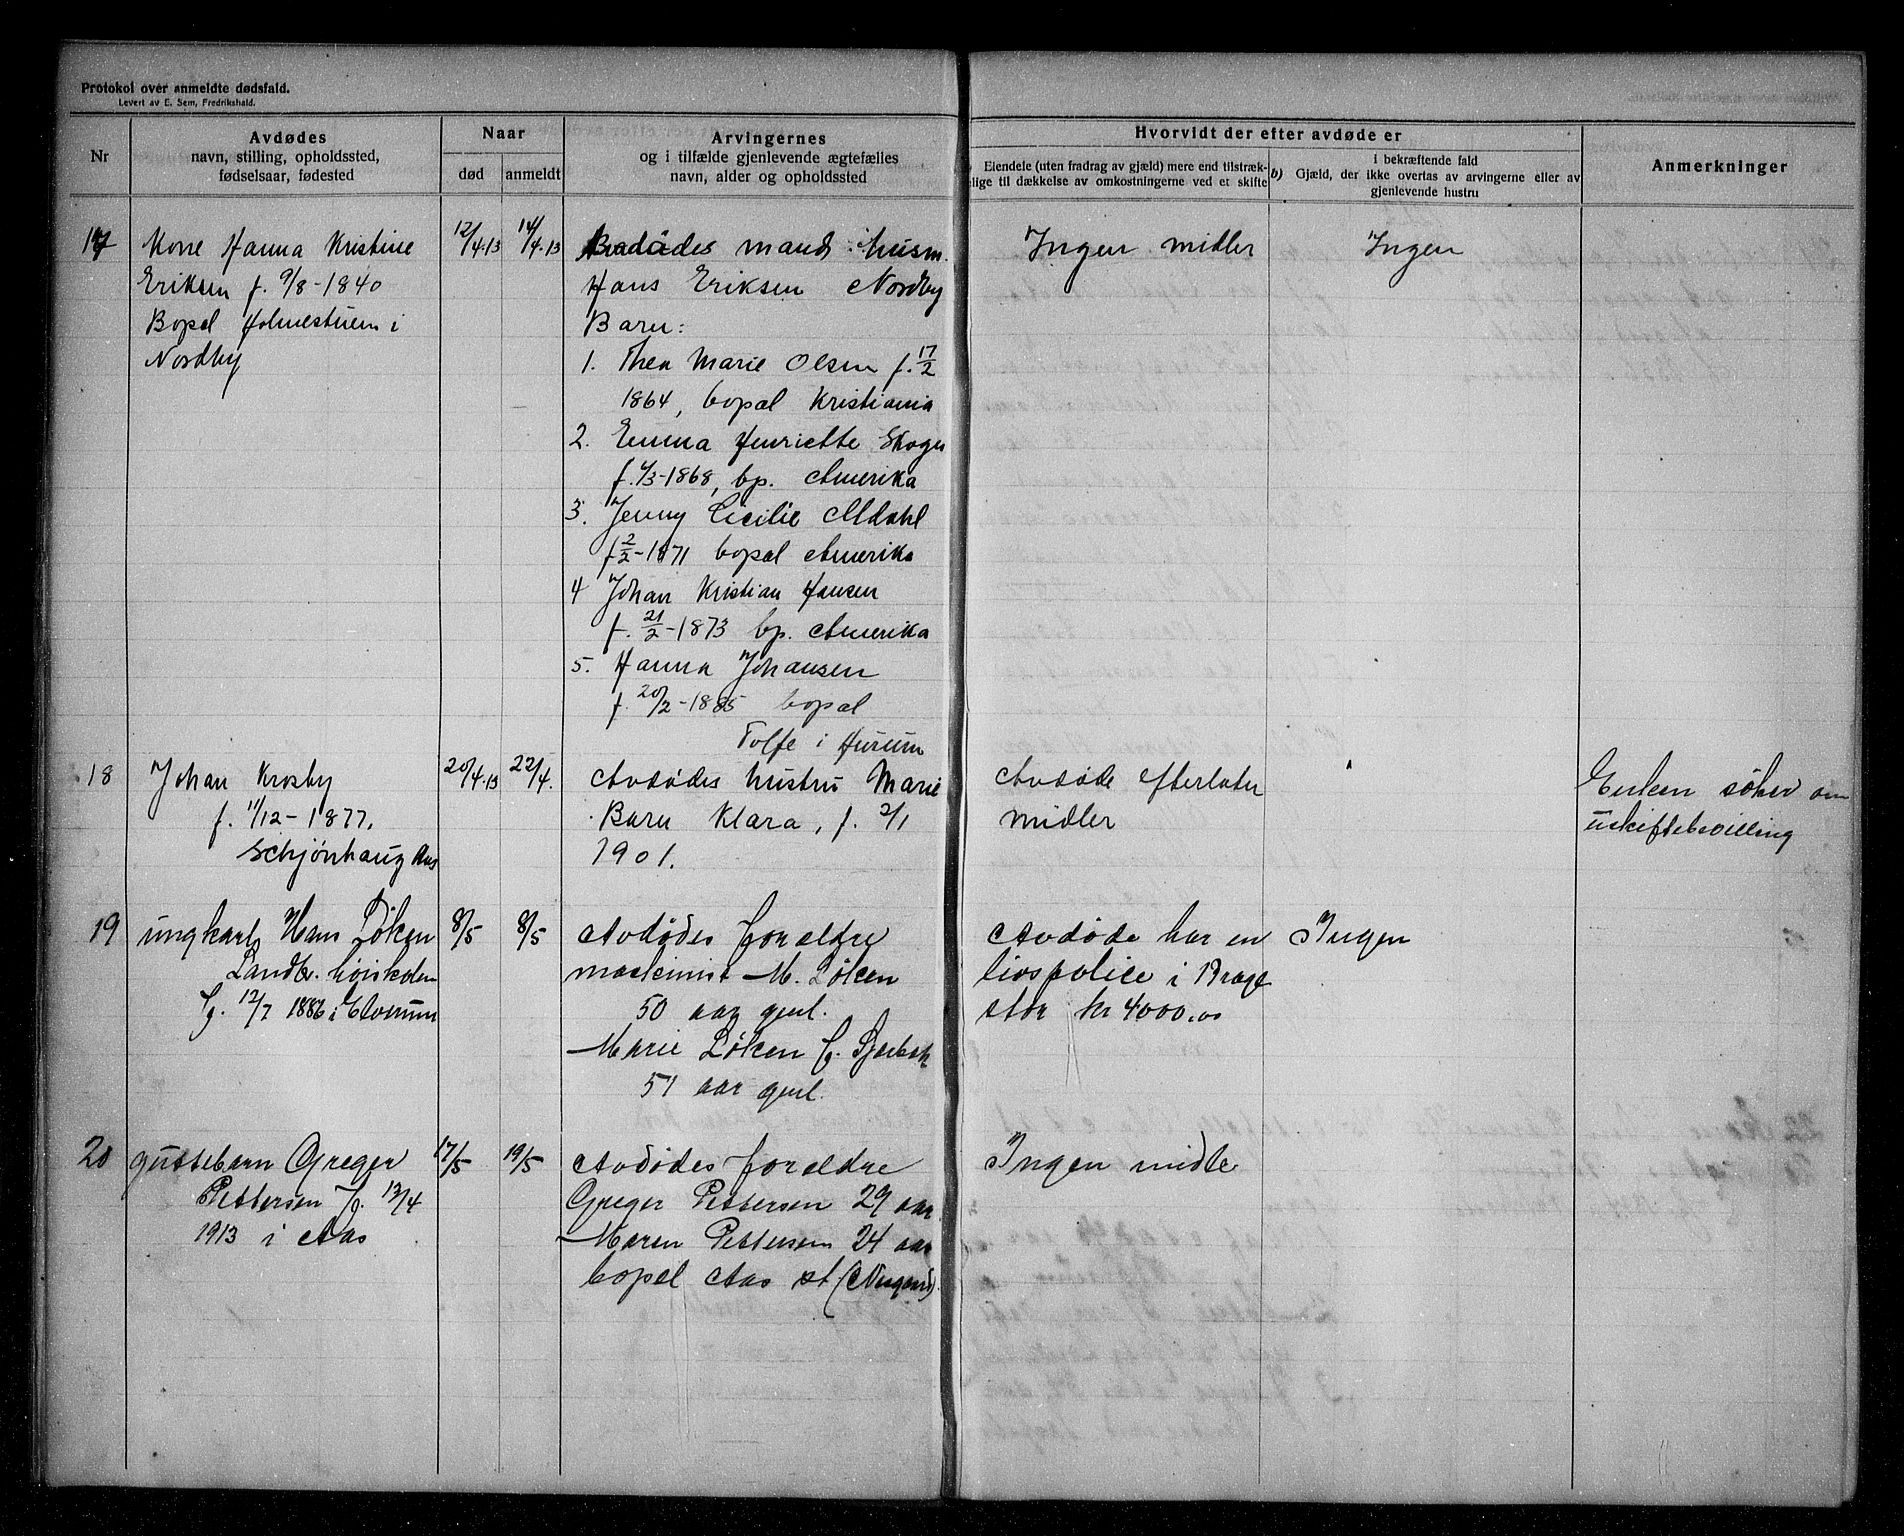 Protokol over anmeldte dødsfald.
Levert av E. Sem, Fredrikshald.
Nr
Avdødes
navn, stilling, opholdssted,
fødselsaar, fødested
Naar
død
anmeldt
Arvingernes
og i tilfælde gjenlevende ægtefælles
navn, alder og opholdssted
Hvorvidt der efter avdøde er
Eiendele (uten fradrag av gjæld) mere end tilstræk-
lige til dækkelse av omkostningerne ved et skifte
b)
i bekræftende fald
Gjæld, der ikke overtas av arvingerne eller av
gjenlevende hustru
Anmerkninger
17
Kone Hanna Kristine
Eriksen f. 9/8-1840
Bopel Holmestuen i
Nordby
12/4.13
14/4.13
Avdødes mand: husm.
Hans Eriksen Nordby
Barn:
1. Thea Marie Olsen f. 17/2
1864, bopæl Kristiania
2. Emma Henriette Skogen
f. 4/3-1868, bp. Amerika
3. Jenny Cecilie Mdahl
f 2/2-1871 bopæl Amerika
4 Johan Kristian Hansen
f. 21/2-1873 bp. Amerika
5. Hanna Johansen
f. 20/2-1885 bopæl
Tofte i Hurum
Ingen midler
Ingen
18
Johan Krosby
f. 11/12-1877.
Schjønhaug Aas
20/4.13
22/4.
Avdødes hustru Marie
Barn Klara, f. 2/1
1901.
Avdøde efterlater
midler
Enken søker om
uskiftebevilling
19
ungkarl Hans Løken
Landbr. høiskolen
f. 12/7 1886 i Elverum
8/5
8/5
Avdødes foreldre
maskinist M. Løken
50 aar gml.
Marie Løken f.
51 aar gml.
Avdøde har en
livspolice i Brage
stor kr 4000.00
Ingen
20
guttebarn Greger
Pettersen f. 13/4
1913 i Aas
17/5
19/5
Avdødes foreldre
Greger Pettersen 29 aar
Maren Pettersen 24 aar
bopel Aas st (Nygaard).
Ingen midle